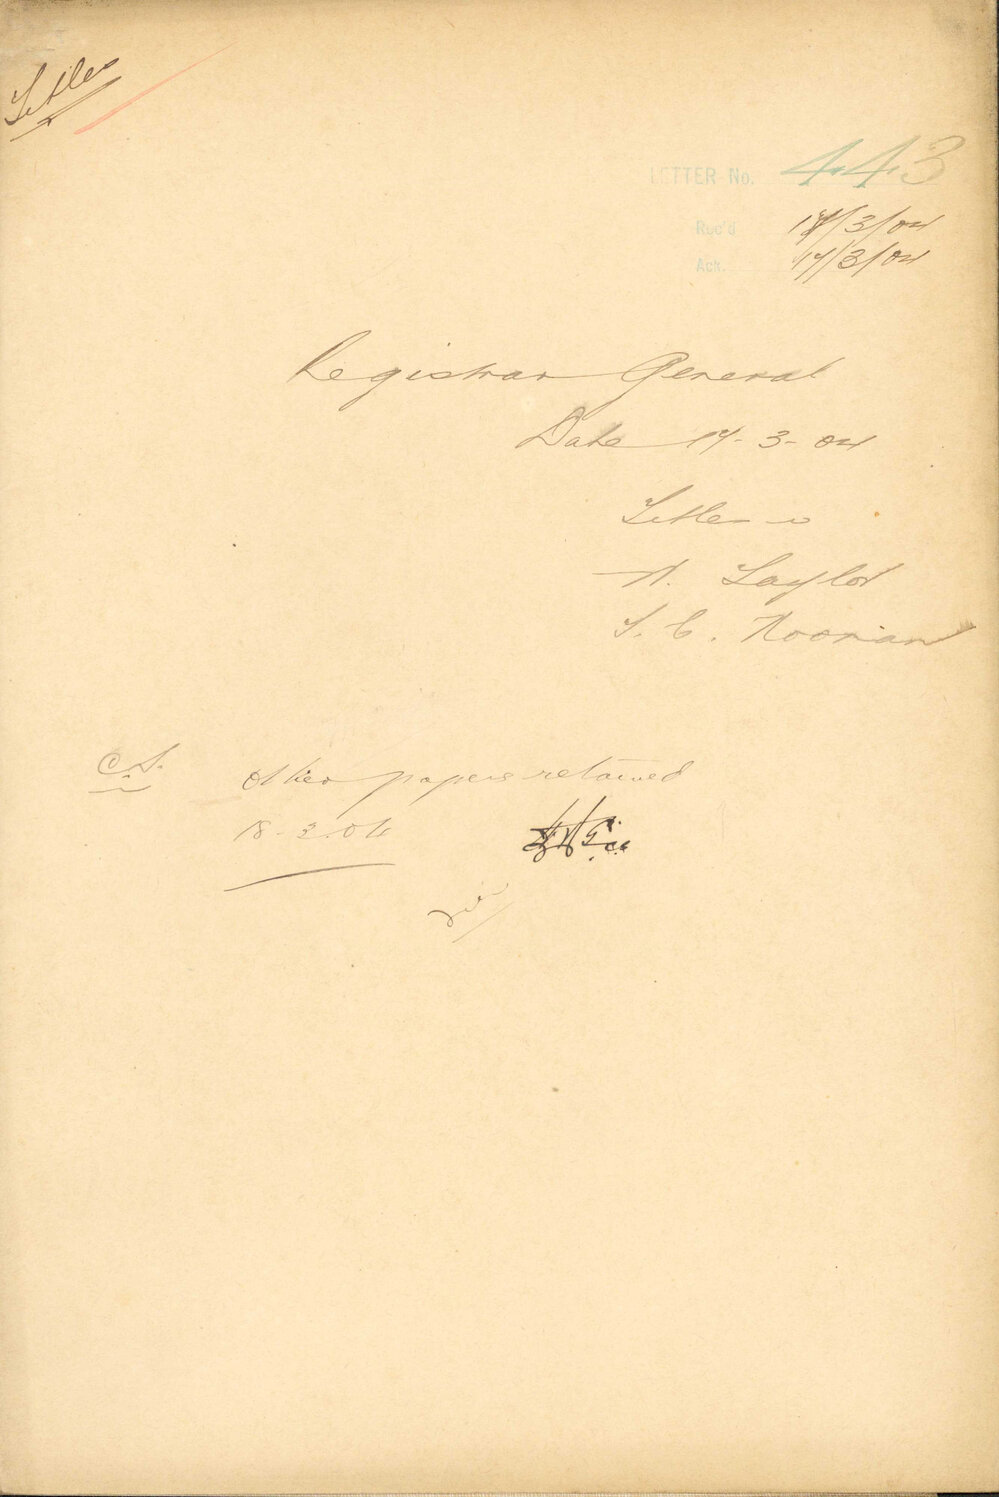 Titles
LETTER No. 443
Rec'd 18/3/04
Ack. 17/3/04
Registrar General
Date 17-3-04
Titles
Taylor
Noonan
C.S.
Other papers retained
18-3-04